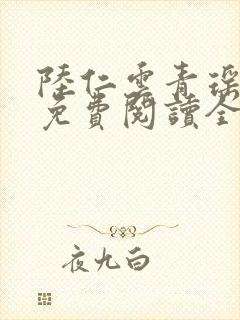 陸仁雲青瑤
免費閱讀全
夜九白